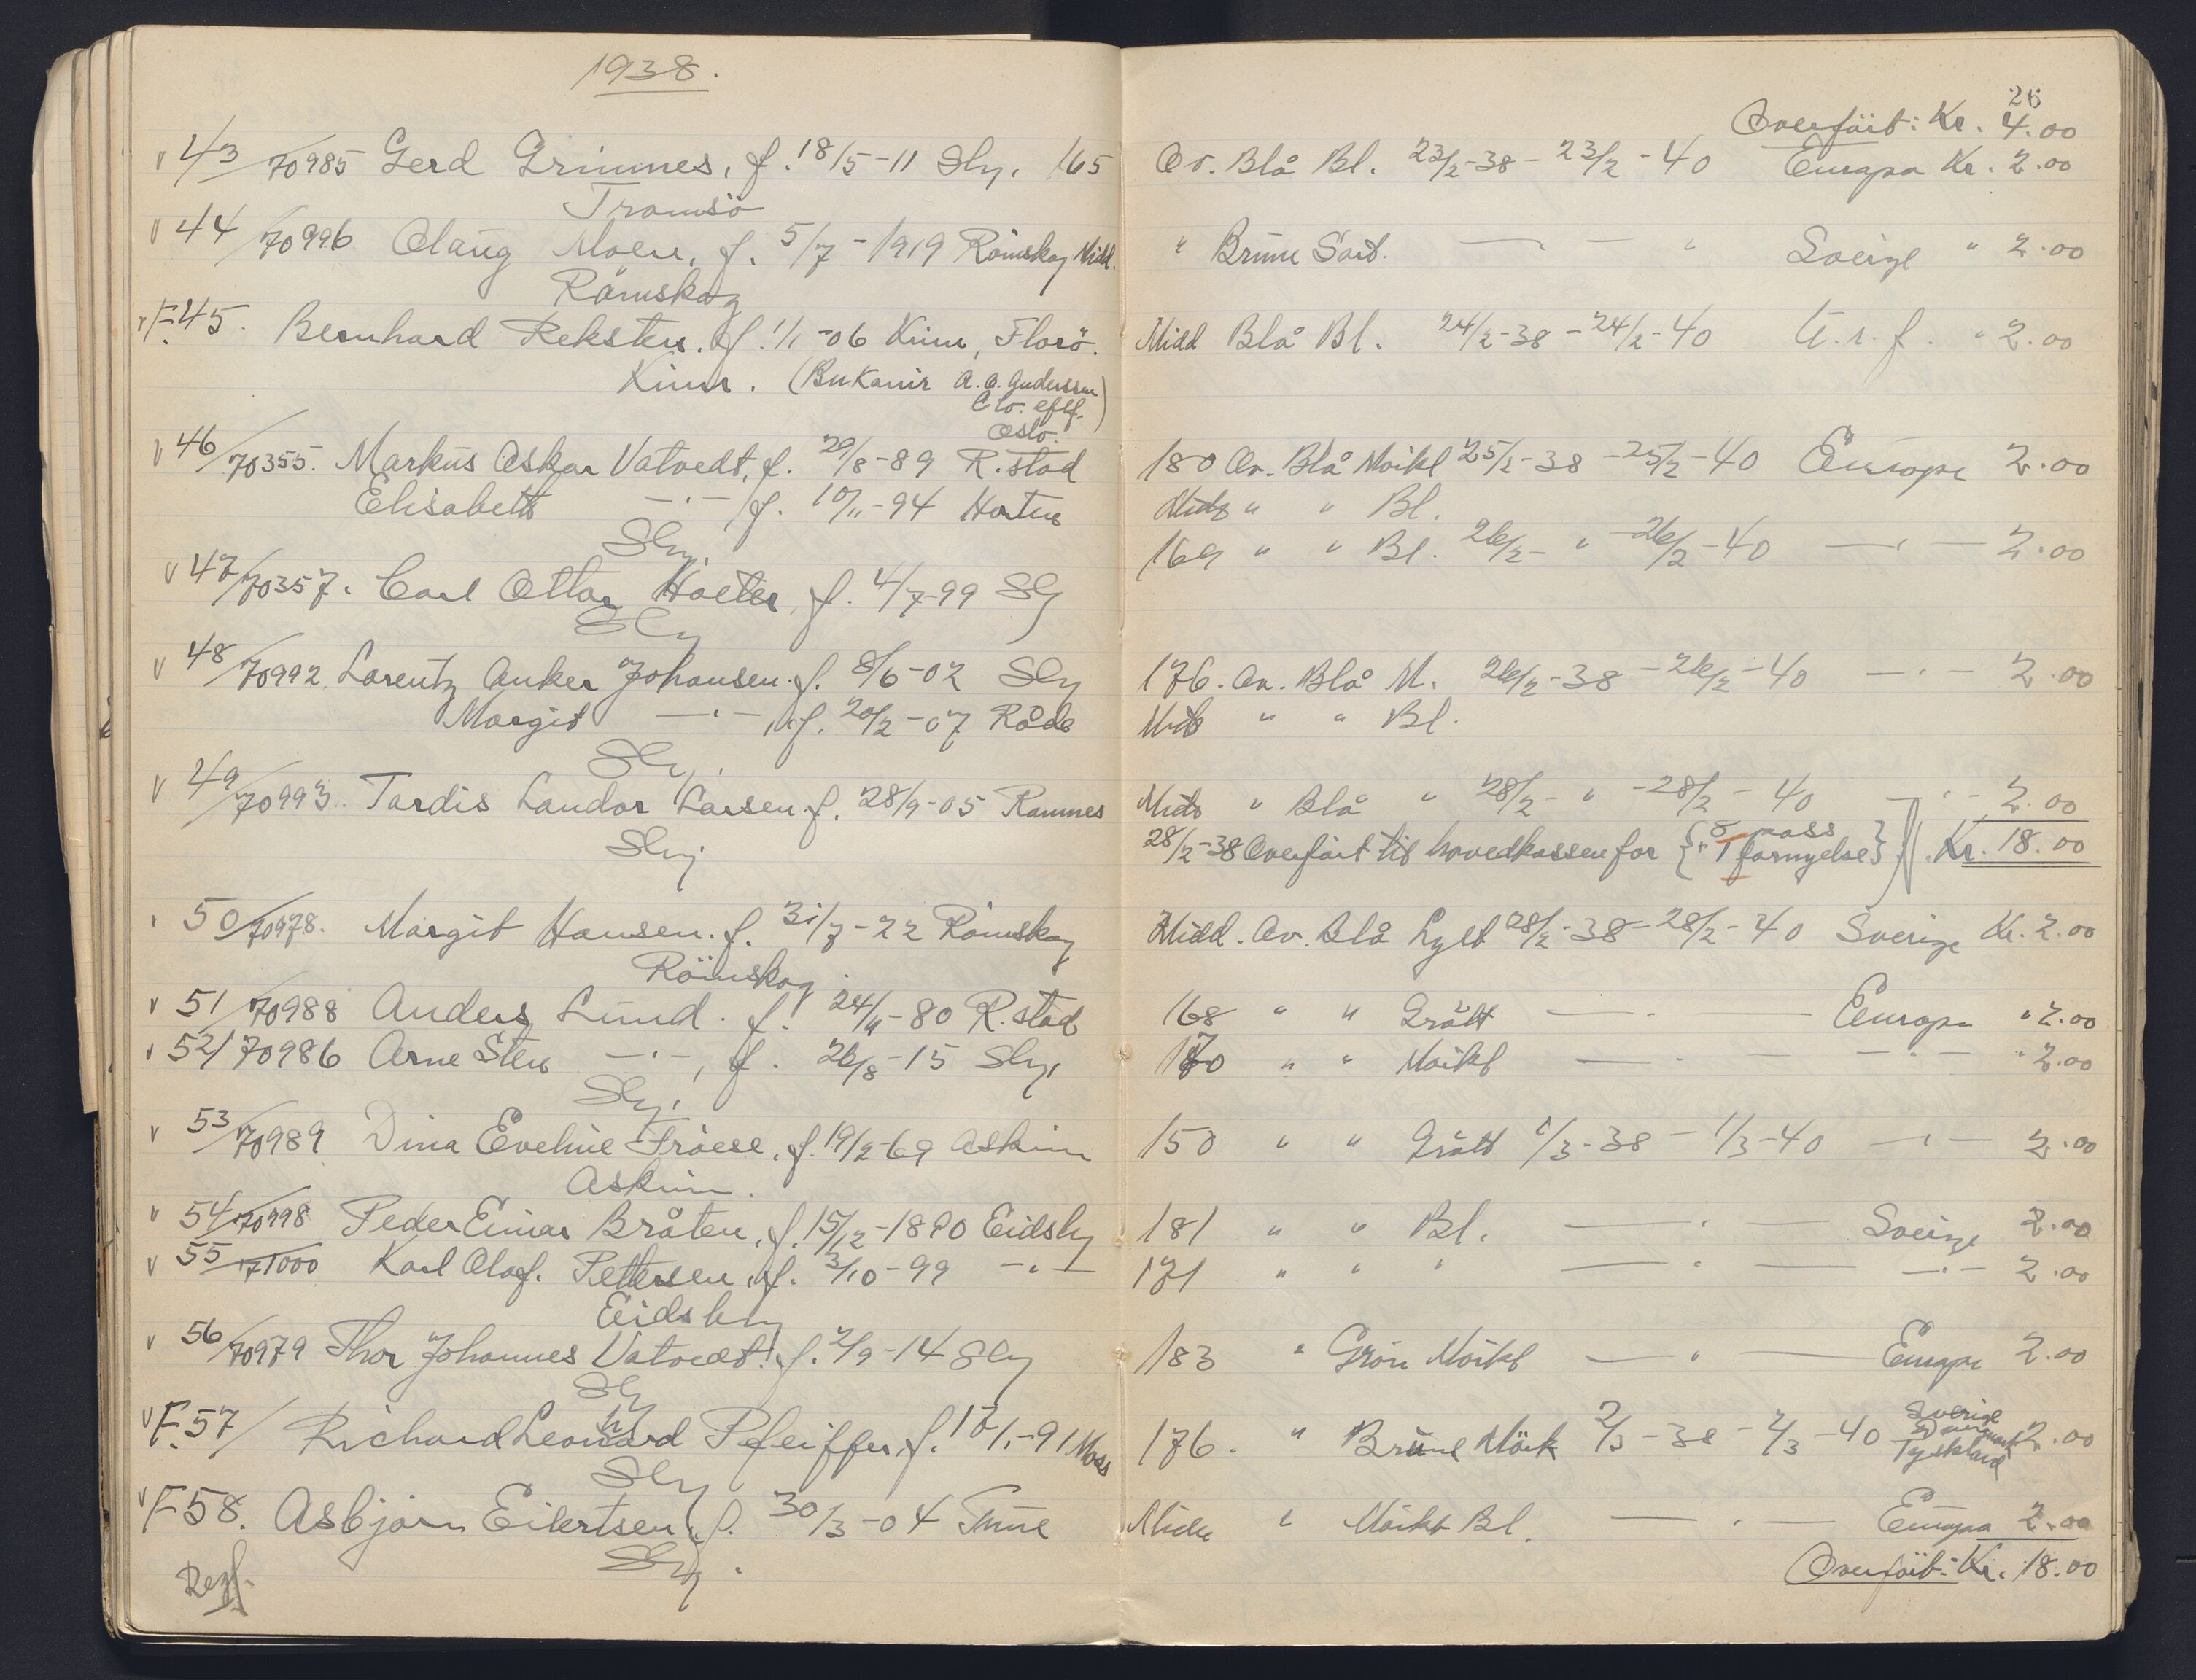 1938.
43/70985 Gerd Grimnes, f. 18/5-11 Slg. 165
Tromsö
44/70996 Olaug Moen, f. 5/7-1919 Römskog Midd.
Römskog
F.45. Bernhard Reksten. f. 1/1-06 Kinn, Florö.
Kinn. (Bukanir A.O. Anderssen
& Co. eftf.)
Oslo.
46/70355. Markus Oskar Vatvedt, f. 29/8-89 R.stad
Elisabeth —·— f. 10/11-94 Horten
Slg.
47/70357. Carl Ottar Holter, f. 4/7-99 Slg
Slg
48/70992 Lorentz Anker Johansen. f. 8/6-02 Slg
Margit —·—, f. 20/2-07 Råde
Slg.
49/70993. Tordis Landor Larsen. f. 28/9-05 Ramnes
Slg
50/70978. Margit Hansen. f. 31/7-22 Römskog
Römskog.
51/70988 Anders Lund. f. 24/11-80 R.stad
52/70986 Arne Sten —·—, f. 26/8-15 Slg,
Slg,
53/70989 Dina Eveline Fröese, f. 19/2-69 Askim
Askim.
54/70998 Peder Einar Bråten, f. 15/12-1890 Eidsbg
55/71000 Karl Olaf. Pettersen, f. 3/10-99 —·—
Eidsberg
56/70979 Thor Johannes Vatvedt. f. 2/9-14 Slg
Slg
F.57/ Richard Leonhard Pfeiffer, f. 17/1-91 Moss
Slg
F58. Asbjørn Eilertsen, f. 30/3-04 Tune
Slg.
26
Overfört: Kr. 4.00
Ov. Blå Bl. 23/2-38 - 23/2-40 Europa Kr. 2.00
" Brune Sort. —·— " Sverige " 2.00
Midd Blå Bl. 24/2-38 - 24/2-40 U.r.f. " 2.00
180 Ov. Blå Mörkt 25/2-38 - 25/2-40 Europa 2.00
Midd " " Bl.
169 " " Bl. 26/2- " - 26/2-40 —·— 2.00
176. Ov. Blå M. 26/2-38 - 26/2-40 —·— 2.00
Midd " " Bl.
Midd " Blå " 28/2- " - 28/2-40 —·— 2.00
28/2-38 Overfört til hovedkassen for {8 pass
" 1 fornyelse} Kr. 18.00
Midd. Ov. Blå Lyst 28/2-38 - 28/2-40 Sverige Kr. 2.00
168 " " Grått —·— Europa " 2.00
170 " " Mörkt —·— —·— " 2.00
150 " " Grått 1/3-38 - 1/3-40 —·— 2.00
181 " " Bl. —·— Sverige 2.00
171 " " " —·— —·— 2.00
183 " Grön Mörkt —·— Europa 2.00
176. " Brune Mörk 2/3-38 - 2/3-40 Sverige
Danmark
Tyskland 2.00
Midd " Mörkt Bl. —·— Europa 2.00
Overfört: Kr. 18.00